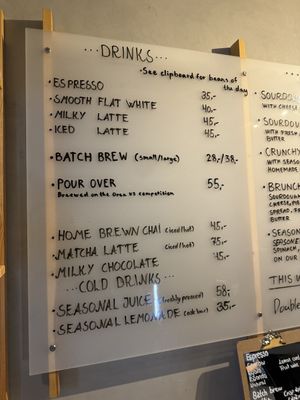 ...DRINKS...
• See clipboard for beans of
the day
• ESPRESSO 35,-
• SMOOTH FLAT WHITE 40,-
• MILKY LATTE 45,-
• ICED LATTE 45,-
• BATCH BREW (small/large) 28,-/38,-
• POUR OVER 55,-
Brewed on the Orea V3 competition
• HOME BREWN CHAI (iced/hot) 45,-
• MATCHA LATTE (iced/hot) 75,-
• MILKY CHOCOLATE 45,-
...COLD DRINKS...
• SEASONAL JUICE (freshly pressed) 58,-
• SEASONAL LEMONADE 35,-
...
• SOURDO
WITH CHEESE
• SOURDOU
WITH
BUTTER
• CRUNCHY
WITH SEASO
HOMEMADE
• BRUNCH
SOURDOUGH
CHEESE,
SPREAD,
BUTTER
• SEASON
SEASONE
SPINACH,
ON OUR
THIS W
Double
Espresso
Batch Brew